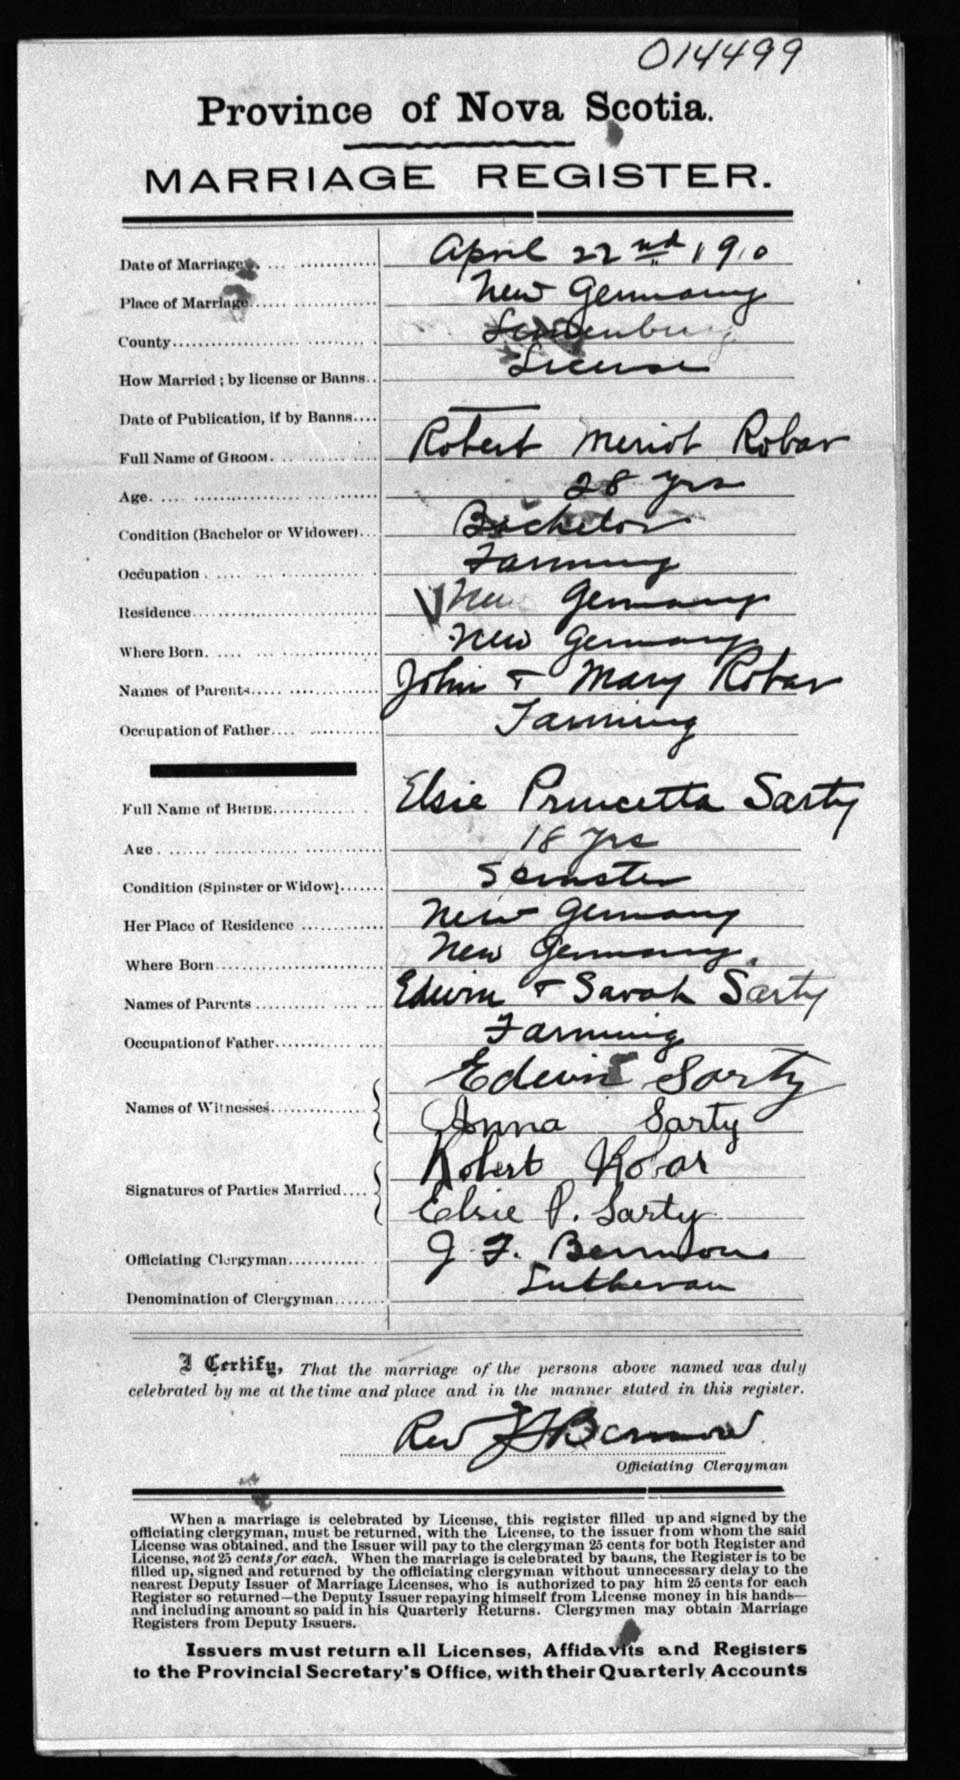 014499
Province of Nova Scotia.
MARRIAGE REGISTER.
Date of Marriage. ... April 22nd 1910
Place of Marriage.... New Germany
County.... Lunenburg
How Married; by license or Banns.. License
Date of Publication, if by Banns.... —
Full Name of GROOM. ... Robert Meriot Robar
Age. ... 28 yrs
Condition (Bachelor or Widower)... Bachelor
Occupation . ... Farming
Residence.... V New Germany
Where Born. ... New Germany
Names of Parents.... John + Mary Robar
Occupation of Father.... Farming
Full Name of BRIDE.... Elsie Princetta Sarty
Age .... 18 Yrs
Condition (Spinster or Widow)....... Spinster
Her Place of Residence .... New Germany
Where Born.... New Germany.
Names of Parents .... Edwin + Sarah Sarty
Occupation of Father.... Farming
Names of Witnesses.... Edwin Sarty
Anna Sarty
Signatures of Parties Married.... Robert Robar
Elsie P. Sarty
Officiating Clergyman.... J. F.
Denomination of Clergyman.... Lutheran
I Certify, That the marriage of the persons above named was duly
celebrated by me at the time and place and in the manner stated in this register.
Rev J F
Officiating Clergyman
When a marriage is celebrated by License, this register filled up and signed by the
officiating clergyman, must be returned, with the License, to the issuer from whom the said
License was obtained, and the Issuer will pay to the clergyman 25 cents for both Register and
License, not 25 cents for each. When the marriage is celebrated by banns, the Register is to be
filled up, signed and returned by the officiating clergyman without unnecessary delay to the
nearest Deputy Issuer of Marriage Licenses, who is authorized to pay him 25 cents for each
Register so returned—the Deputy Issuer repaying himself from License money in his hands—
and including amount so paid in his Quarterly Returns. Clergymen may obtain Marriage
Registers from Deputy Issuers.
Issuers must return all Licenses, Affidavits and Registers
to the Provincial Secretary's Office, with their Quarterly Accounts